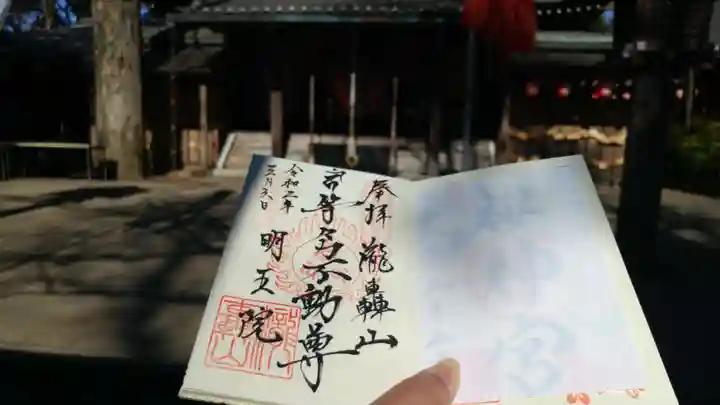 奉拝 瀧轟山
等々力不動尊
明王院
令和二年
三月六日